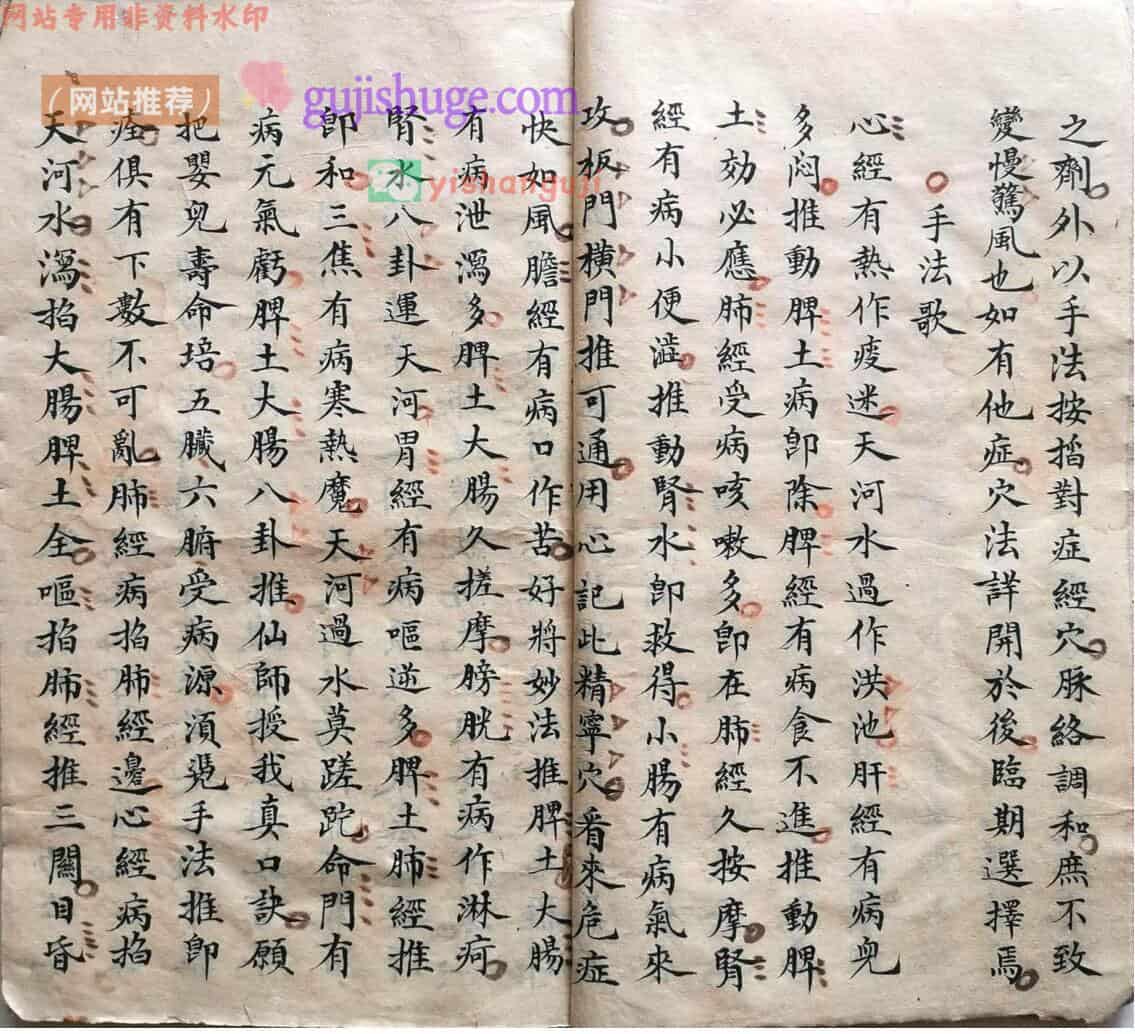 网站专用非资料水印
（网站推荐）
gujishuge.com
yishanguji
之劑外以手法按掐對症經穴脉絡調和庶不致
變慢驚風也如有他症穴法詳開於後臨期選擇焉
手法歌
心經有熱作痰迷天河水過作洪池肝經有病兒
多悶推動脾土病卽除脾經有病食不進推動脾
土効必應肺經受病咳嗽多卽在肺經久按摩腎
經有病小便澁推動腎水卽救得小腸有病氣來
攻板門橫門推可通用心記此精寧穴看來危症
快如風膽經有病口作苦好將妙法推脾土大腸
有病泄瀉多脾土大腸久搓摩膀胱有病作淋疴
腎水八卦運天河胃經有病嘔逆多脾土肺經推
卽和三焦有病寒熱魔天河過水莫蹉跎命門有
病元氣虧脾土大腸八卦推仙師授我真口訣願
把嬰兒壽命培五臟六腑受病源須凴手法推卽
痊俱有下數不可亂肺經病掐肺經邊心經病掐
天河水瀉掐大腸脾土全嘔掐肺經推三關目昏